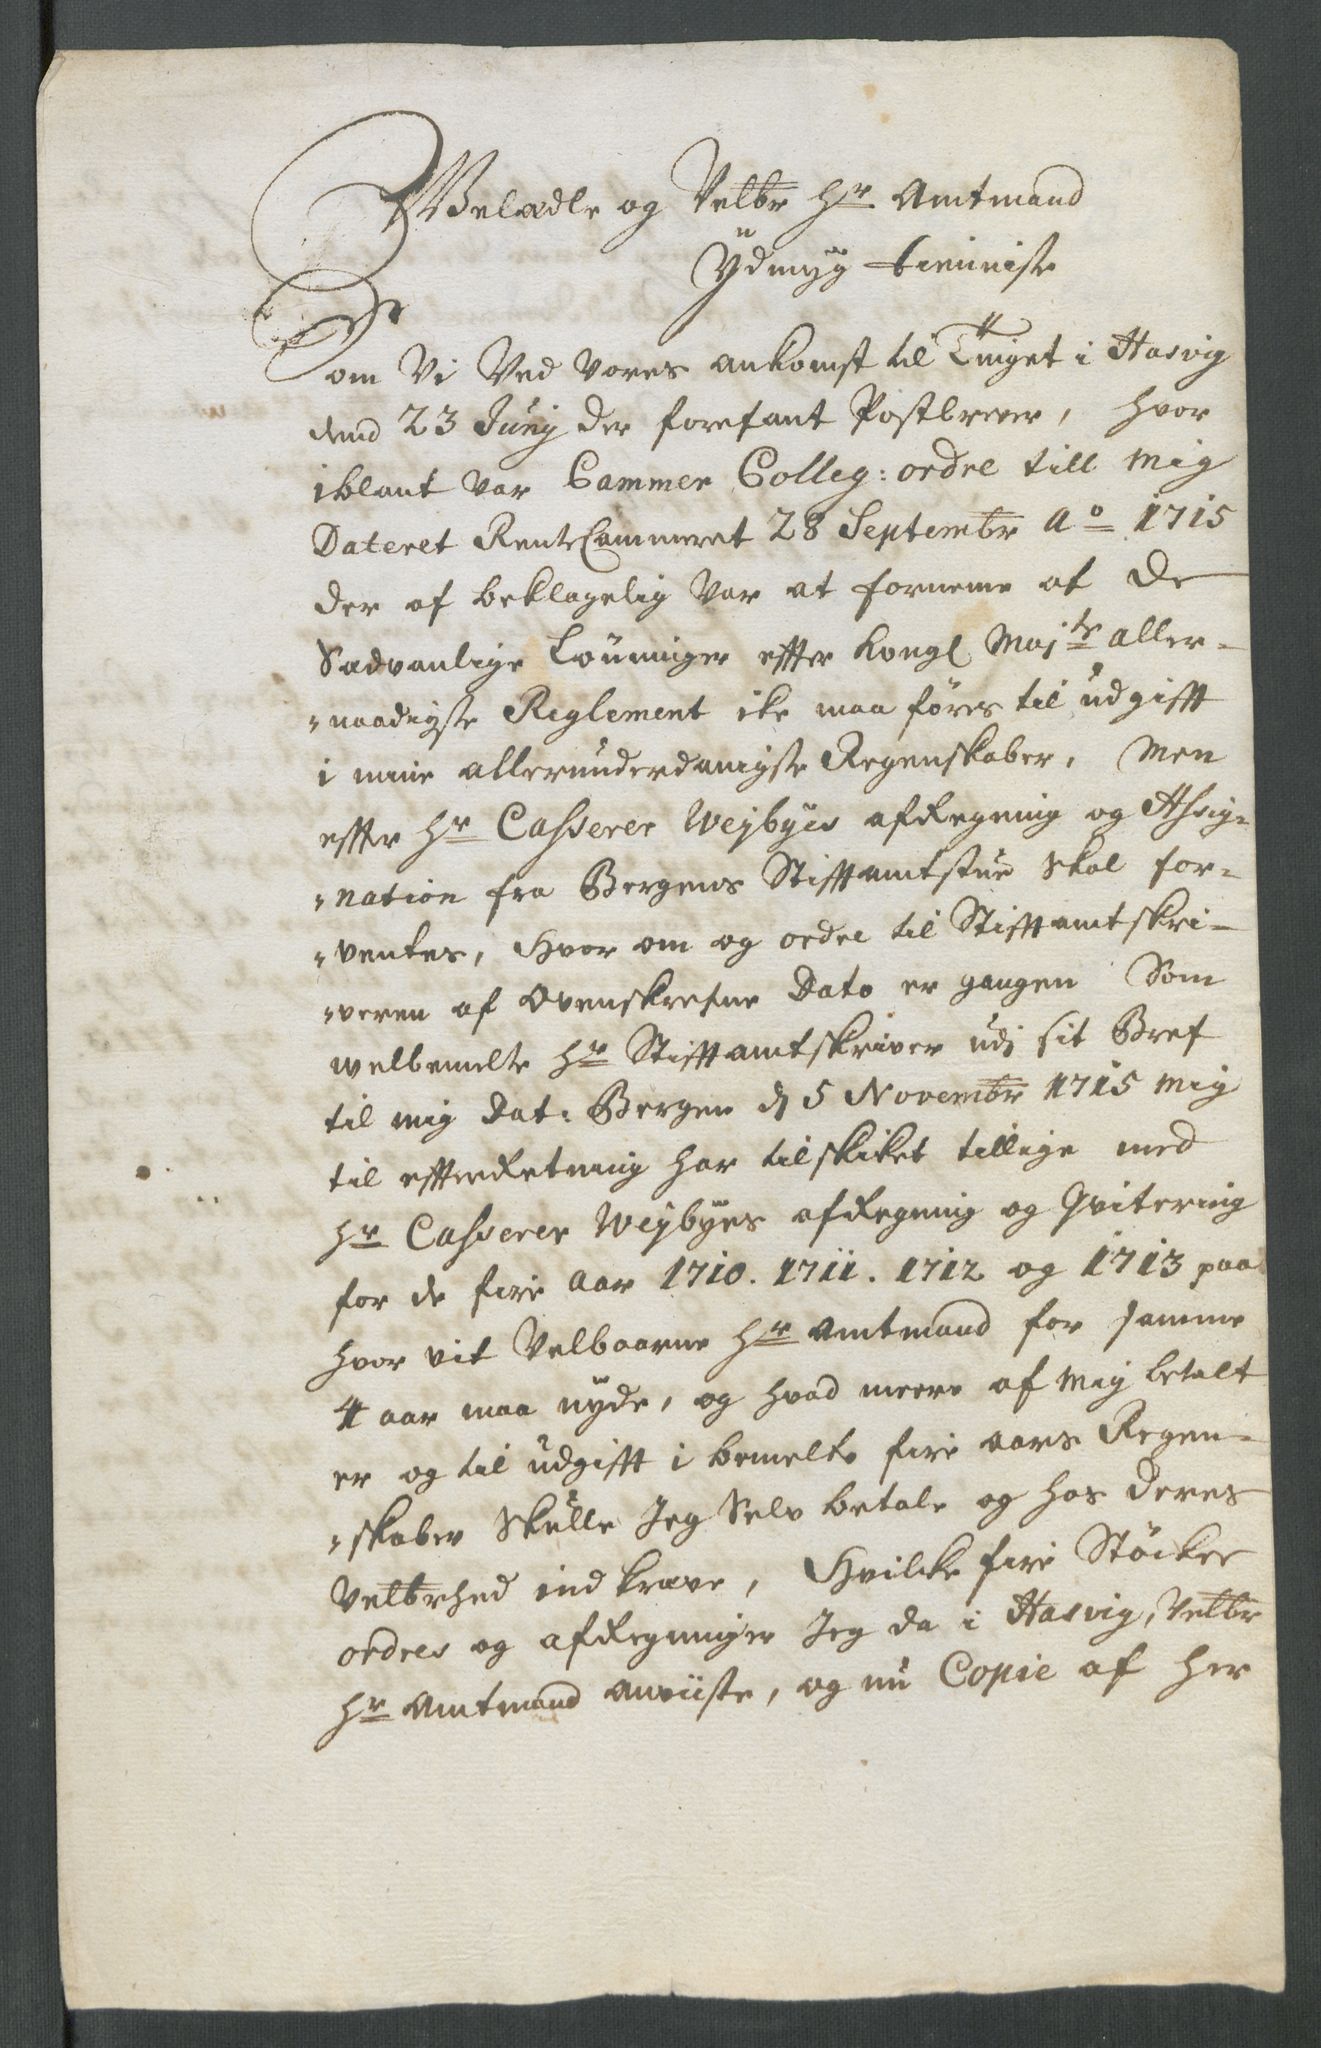 Welædle og Velbr Hr Amtmand
Ydmyg tienniste
Som Vi Ved Vores ankomst til Tinget i Hasvig
dend 23 Junij der forefant Postbrever, hvor
iblant var Cammer Colleg: ordre till Mig
Dateret RenteCammeret 28 Septembr Ao 1715
der af beklagelig var at forneme at De
Sædvanlige Lønninger effter Kongl Majts aller-
naadigste Reglement ike maa føres til udgifft
i mine allerunderdanigste Regenskaber, Men
effter Hr Casserer Weybyes afRegning og Assig-
nation fra Bergens Stifftamtstue skal for-
ventes, Hvor om og ordre til Stifftamtskri-
veren af Ovenskrefne Dato er gangen Som
welbemelte Hr Stifftamtskriver udj sit Bref
til mig Dat: Bergen dj 5 Novembr 1715 Mig
til effterRetning har tilskiket tillige med
Hr Casserer Weybyes afRegning og Qvitering
for de fire Aar 1710. 1711. 1712 og 1713 paa
hvor vit Velbaarne Hr Amtmand for samme
4 aar maa nyde, og hvad meere af Mig betalt
er og til udgifft i bemelte fire aars Regen-
skaber Skulle Jeg Selv betale og hos Deres
Velbrhed ind kræve, Hvilcke fire Støcker
ordres og afRegninger Jeg da i Hasvig, Velbr
Hr Amtmand anviiste, og nu Copie af her